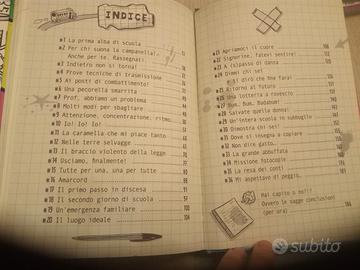 INDICE
#1 La prima alba di scuola
#2 Per chi suona la campanella?
Anche per te. Rassegnati!
#3 Indietro non si torna!
#4 Prove tecniche di trasmissione
#5 Ai posti di combattimento!
#6 Una pecorella smarrita
#7 Prof, abbiamo un problema
#8 Molti modi per sbagliare
#9 Attenzione, concentrazione, ritmo
#10 Io! Io! Io!
#11 La caramella che mi piace tanto
#12 Nelle terre selvagge
#13 Il braccio violento della legge
#14 Usciamo, finalmente!
#15 Tutte per una, una per tutte
#16 Amarcord
#17 Il primo passo in discesa
#18 Il secondo giorno di scuola
#19 Un'emergenza familiare
#20 Il luogo ideale
#21 Apriamoci il cuore
#22 Signorine, fatevi sentire!
#23 A (s)passo di danza
#24 Dimmi chi sei
e ti dirò che due farai
#25 Ritorno al futuro
#26 Una lotteria a rovescio
#27 Bum, Bum, Badabum!
#28 Salvate quella donna!
#29 Un'intera scuola in subbuglio
#30 Dimostra chi sei!
#31 Dove si insegna a copiare
#32 Non dire gatto...
#33 La grande abbuffata
#34 Missione fotocopie
#35 La resa dei conti
#36 Mi aspettavo di peggio.
Hai capito o no??
Ovvero le sagge conclusioni
(per ora)
subito